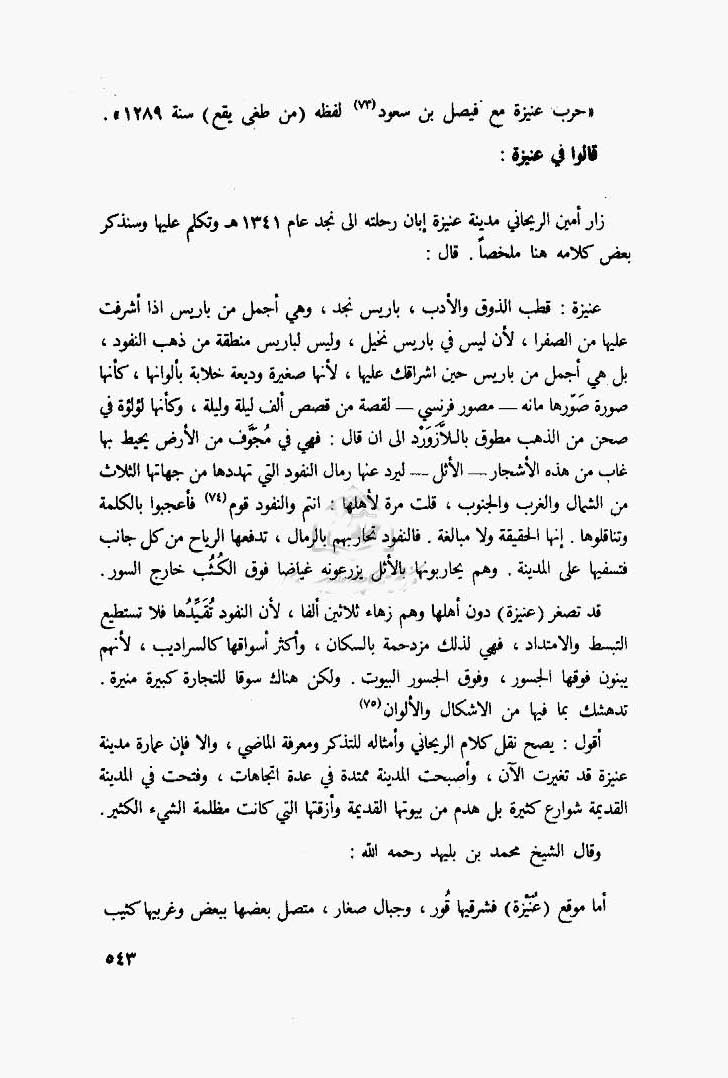 «حرب عنيزة مع فيصل بن سعود(٧٣) لفظه (من طغى يقع) سنة ١٢٨٩».
قالوا في عنيزة :
زار أمين الريحاني مدينة عنيزة إبان رحلته الى نجد عام ١٣٤١هـ وتكلم عليها وسنذكر
بعض كلامه هنا ملخصاً . قال :
عنيزة : قطب الذوق والأدب ، باريس نجد ، وهي أجمل من باريس اذا أشرفت
عليها من الصفرا ، لأن ليس في باريس نخيل ، وليس لباريس منطقة من ذهب النفود ،
بل هي أجمل من باريس حين اشراقك عليها ، لأنها صغيرة وديعة خلابة بألوانها ، كأنها
صورة صَوّرها مانه — مصور فرنسي — لقصة من قصص ألف ليلة وليلة ، وكأنها لؤلؤة في
صحن من الذهب مطوق باللاَّزَوَرْد الى ان قال : فهي في مُجَوَّف من الأرض يحيط بها
غاب من هذه الأشجار — الأثل — ليرد عنها رمال النفود التي تهددها من جهاتها الثلاث
من الشمال والغرب والجنوب ، قلت مرة لأهلها : انتم والنفود قوم(٧٤) فأعجبوا بالكلمة
وتناقلوها . إنها الحقيقة ولا مبالغة . فالنفود تحاربهم بالرمال ، تدفعها الرياح من كل جانب
فتسفيها على المدينة . وهم يحاربونها بالأثل يزرعونه غياضا فوق الكُثُب خارج السور.
قد تصغر (عنيزة) دون أهلها وهم زهاء ثلاثين ألفا ، لأن النفود تُقَيِّدُها فلا تستطيع
التبسط والامتداد ، فهي لذلك مزدحمة بالسكان ، وأكثر أسواقها كالسراديب ، لأنهم
يبنون فوقها الجسور ، وفوق الجسور البيوت . ولكن هناك سوقا للتجارة كبيرة منيرة .
تدهشك بما فيها من الاشكال والألوان(٧٥)
أقول : يصح نقل كلام الريحاني وأمثاله للتذكر ومعرفة الماضي ، والا فإن عمارة مدينة
عنيزة قد تغيرت الآن ، وأصبحت المدينة ممتدة في عدة اتجاهات ، وفتحت في المدينة
القديمة شوارع كثيرة بل هدم من بيوتها القديمة وأزقتها التي كانت مظلمة الشيء الكثير.
وقال الشيخ محمد بن بليهد رحمه الله :
أما موقع (عُنَيْزة) فشرقيها قُور ، وجبال صغار ، متصل بعضها ببعض وغربيها كثيب
٥٤٣